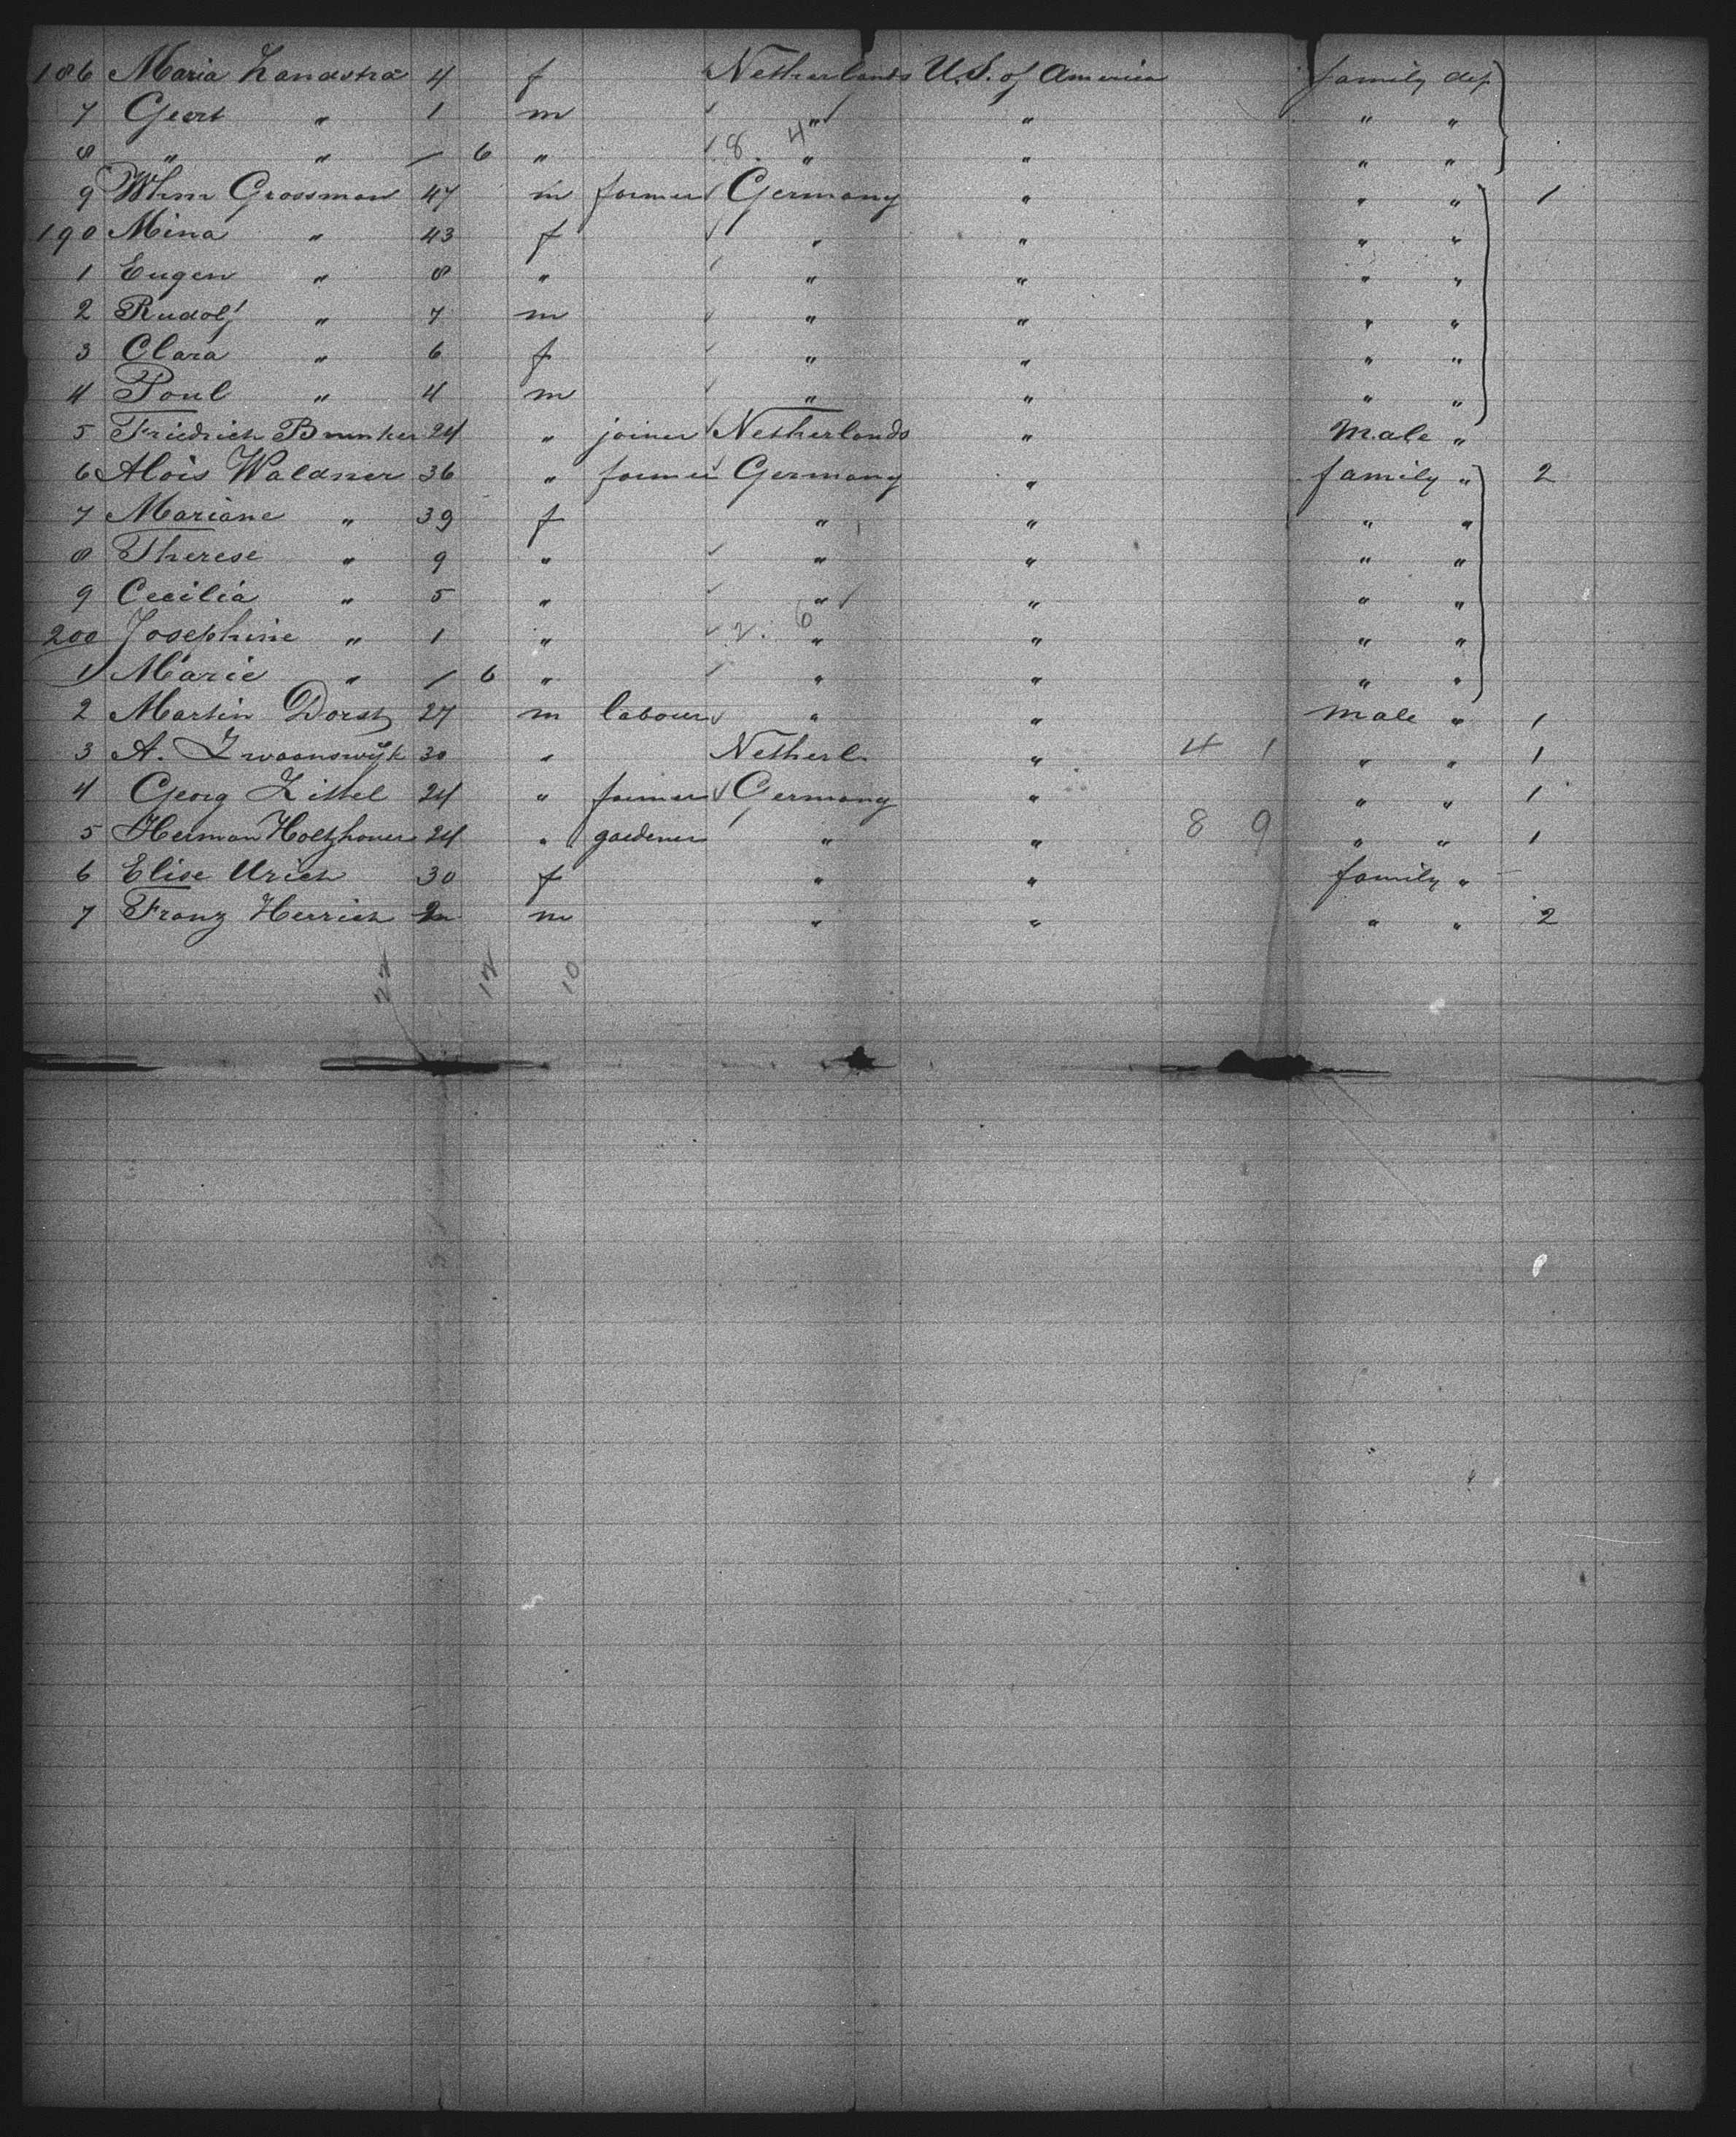 186 Maria Landstra 4 f Netherlands U.S. of America family dep
7 Geert " 1 m " " " "
8 " " / 6 " 8. 4 " " " "
9 Whm Grossman 47 m farmer Germany " " " 1
190 Mina " 43 f " " " "
1 Eugen " 8 " " " " "
2 Rudolf " 7 m " " " "
3 Clara " 6 f " " " "
4 Poul " 4 m " " " "
5 Friedrich Brunker 24 " joiner Netherlands " Male "
6 Alois Waldner 36 " farmer Germany " family " 2
7 Mariane " 39 f " " " "
8 Therese " 9 " " " " "
9 Cecilia " 5 " " " " "
200 Josephine " 1 " 2. 6 " " " "
1 Marie " / 6 " " " " "
2 Martin Dorst 27 m labour " " Male " 1
3 A. Zwaanswijk 30 " Netherl. " 4 1 " " 1
4 Georg Zittel 24 " farmer Germany " " " 1
5 Herman 24 " gardener " " 8 9 " " 1
6 Elise Urich 30 f " " family "
7 Franz Herrich m " " " " 2
22 12 10